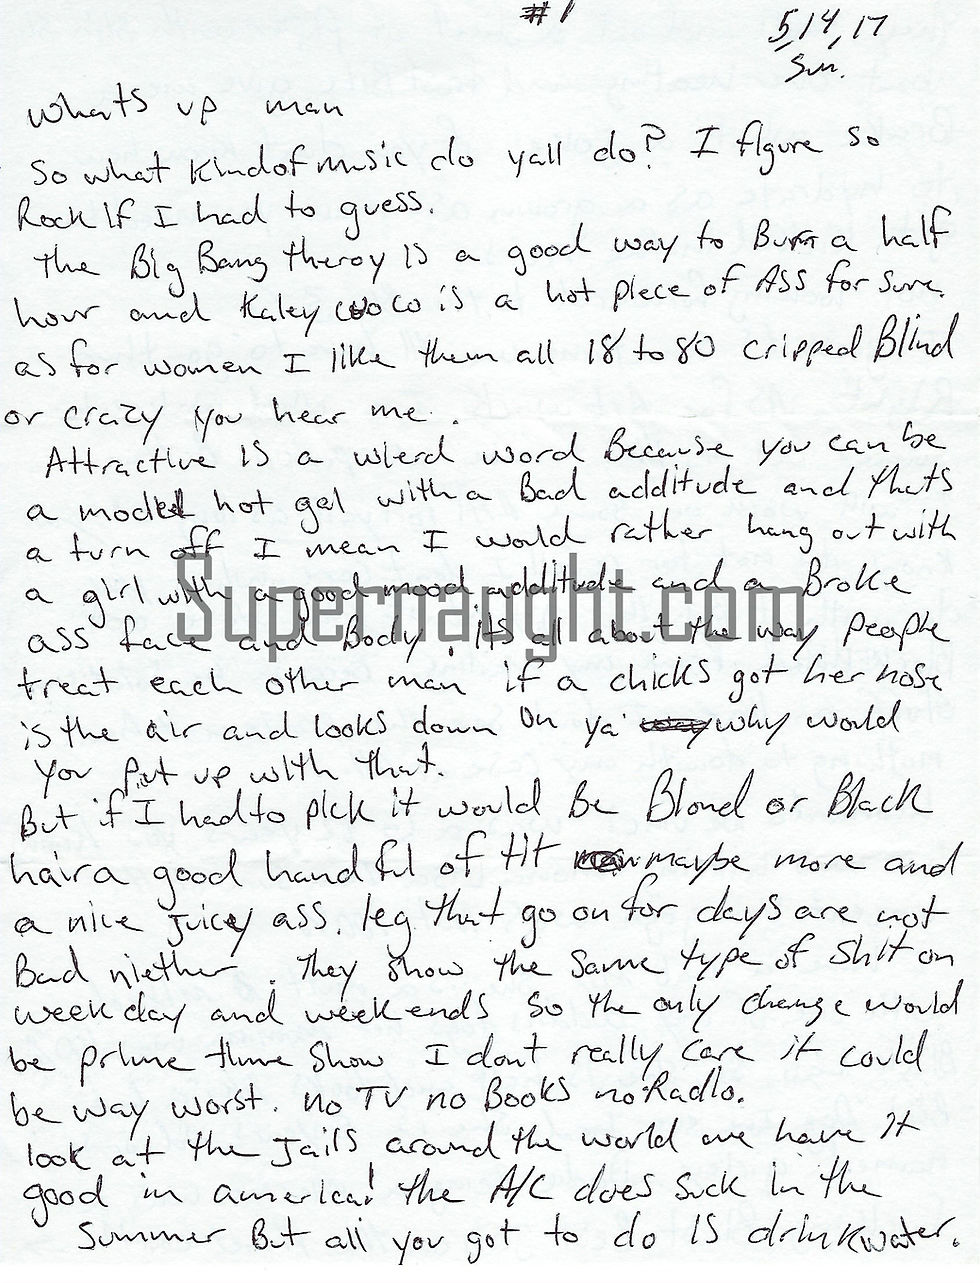 #1
5,14,17
Sun.
whats up man
So what Kindof music do yall do? I figure so
Rock If I had to guess.
The Big Bang theroy is a good way to Burn a half
hour and Kaley cuoco is a hot piece of ASS for sure.
as for women I like them all 18 to 80 cripped Blind
or crazy you hear me.
Attractive is a wierd word Because you can be
a model hot gal with a Bad additude and thats
a turn off I mean I would rather hang out with
a girl with a good mood additude and a Broke
ass face and Body. its all about the way people
treat each other man if a chicks got her nose
is the air and looks down on ya' why would
you put up with that.
But if I had to pick it would be Blond or Black
hair a good handful of tit maybe more and
a nice Juicey ass. leg that go on for days are not
Bad niether. They show the same type of shit on
week day and week ends so the only change would
be prime thime show I dont really care it could
be way worst. no TV no Books no Radio.
look at the Jails around the world we have it
good in america! the A/C does suck in the
Summer But all you got to do is drink water.
Supernaught.com